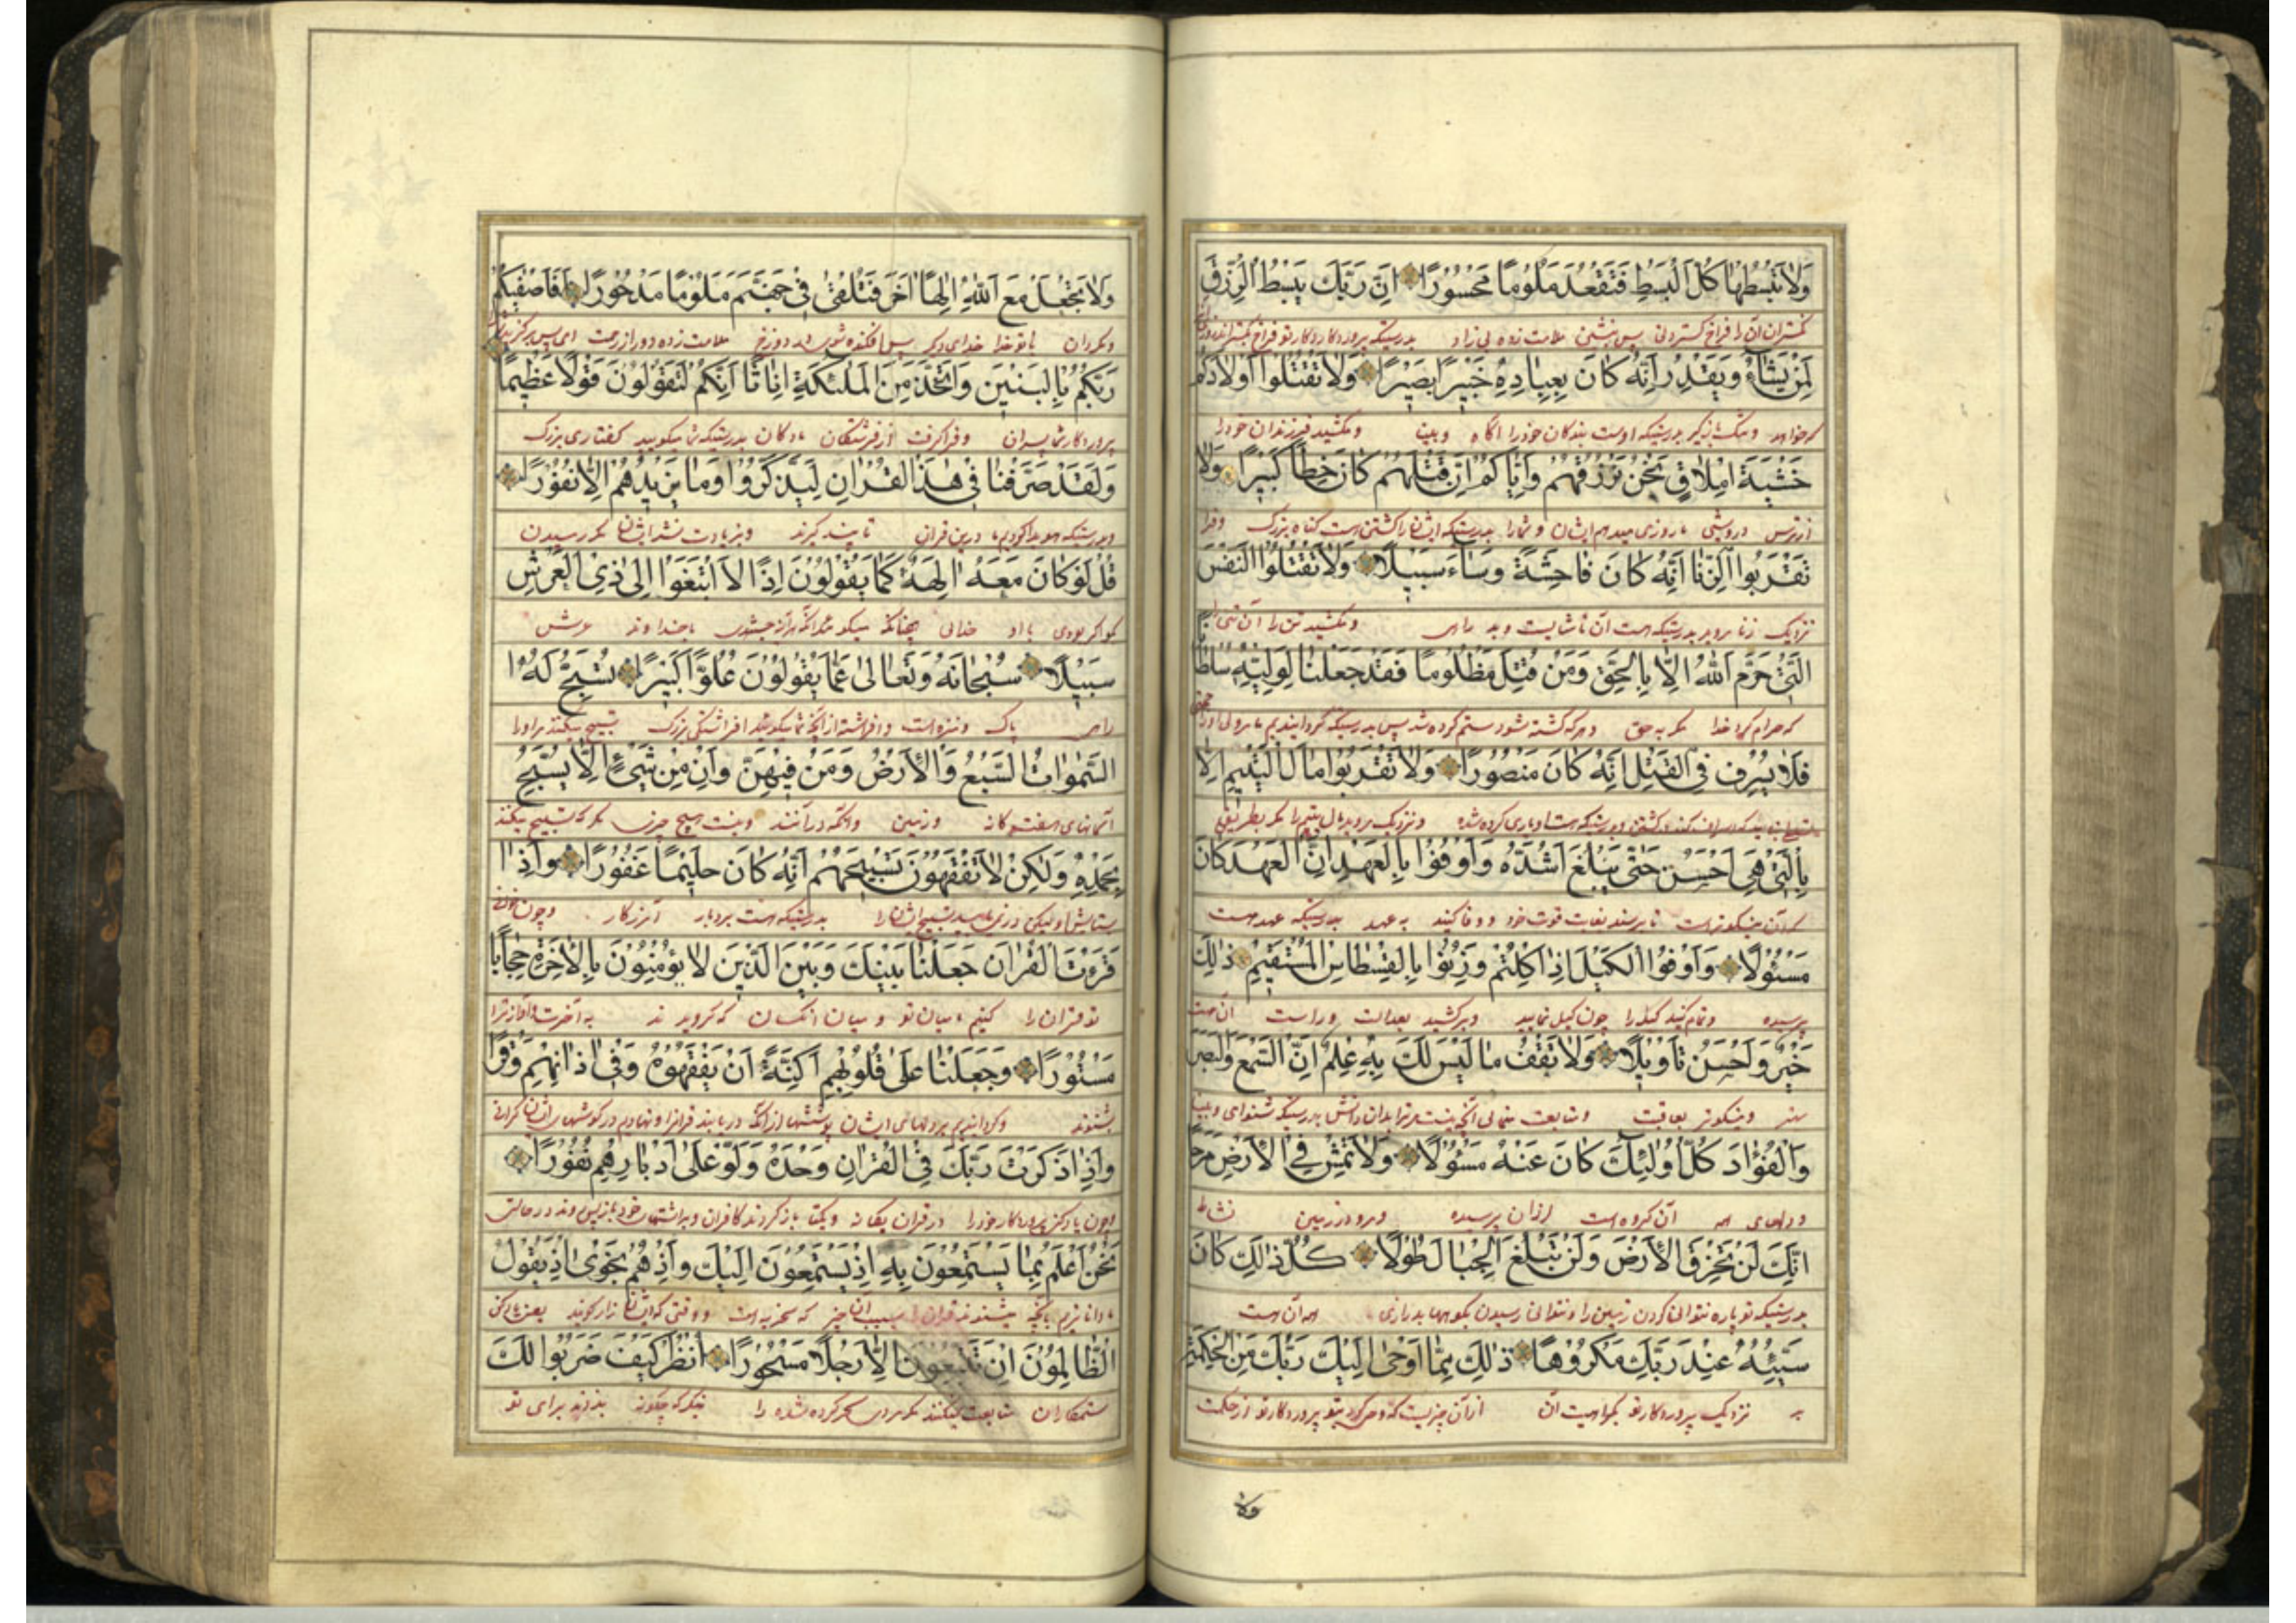 وَلَا تَبْسُطْهَا كُلَّ الْبَسْطِ فَتَقْعُدَ مَلُومًا مَحْسُورًا اِنَّ رَبَّكَ يَبْسُطُ الرِّزْقَ
بدرستیکه پروردکار تو فراخ
لِمَنْ يَشَاءُ وَيَقْدِرُ اِنَّهُ كَانَ بِعِبَادِهِ خَبِيرًا بَصِيرًا وَلَا تَقْتُلُوا اَوْلَادَكُمْ
بدرستیکه اوست ببندکان خود را اکاه و بینا و مکشید فرزندان خود را
خَشْيَةَ اِمْلَاقٍ نَحْنُ نَرْزُقُهُمْ وَاِيَّاكُمْ اِنَّ قَتْلَهُمْ كَانَ خِطْأً كَبِيرًا وَلَا
از ترس درویشی ما روزی میدهم ایشان و شما را بدرستیکه کشتن است کناه بزرک
تَقْرَبُوا الزِّنَا اِنَّهُ كَانَ فَاحِشَةً وَسَاءَ سَبِيلًا وَلَا تَقْتُلُوا النَّفْسَ
نزدیک زنا مروید بدرستیکه هست آن ناشایست و بد راهی و مکشید تن را
الَّتِي حَرَّمَ اللّٰهُ اِلَّا بِالْحَقِّ وَمَنْ قُتِلَ مَظْلُومًا فَقَدْ جَعَلْنَا لِوَلِيِّهِ سُلْطَانًا
که حرام کرد خدا مکر به حق و هرکه کشته شود ستم کرده شد پس بدرستیکه کردانیدیم
فَلَا يُسْرِفْ فِي الْقَتْلِ اِنَّهُ كَانَ مَنْصُورًا وَلَا تَقْرَبُوا مَالَ الْيَتِيمِ اِلَّا
و نزدیک مروید بمال یتیم را مکر بطریقی
بِالَّتِي هِيَ اَحْسَنُ حَتّٰى يَبْلُغَ اَشُدَّهُ وَاَوْفُوا بِالْعَهْدِ اِنَّ الْعَهْدَ كَانَ
که آن نیکوتر است تا برسد بغایت قوت خود و وفا کنید به عهد بدرستیکه عهد هست
مَسْئُولًا وَاَوْفُوا الْكَيْلَ اِذَا كِلْتُمْ وَزِنُوا بِالْقِسْطَاسِ الْمُسْتَقِيمِ ذٰلِكَ
پرسیده و تمام کنید کیل را چون کیل نمایید و برکشید بعدالت و راست آن هست
خَيْرٌ وَاَحْسَنُ تَأْوِيلًا وَلَا تَقْفُ مَا لَيْسَ لَكَ بِهِ عِلْمٌ اِنَّ السَّمْعَ وَالْبَصَرَ
و نیکوتر بعاقبت و متابعت منمای آنچه نیست مر ترا بدان دانش بدرستیکه شنوای و بینای
وَالْفُؤَادَ كُلُّ اُولٰئِكَ كَانَ عَنْهُ مَسْئُولًا وَلَا تَمْشِ فِي الْاَرْضِ مَرَحًا
و دلهای همه آن کروه است از آن پرسیده و مرو در زمین نشاط
اِنَّكَ لَنْ تَخْرِقَ الْاَرْضَ وَلَنْ تَبْلُغَ الْجِبَالَ طُولًا كُلُّ ذٰلِكَ كَانَ
بدرستیکه تو پاره نتوانی کردن زمین را و نتوانی رسیدن بکوهها بدرازی همه آن هست
سَيِّئُهُ عِنْدَ رَبِّكَ مَكْرُوهًا ذٰلِكَ مِمَّا اَوْحٰى اِلَيْكَ رَبُّكَ مِنَ الْحِكْمَةِ
بد نزدیک پروردکار تو از آن چیزیست که وحی کرد بتو پروردکار تو از حکمت
ولا
وَلَا تَجْعَلْ مَعَ اللّٰهِ اِلٰهًا اٰخَرَ فَتُلْقٰى فِي جَهَنَّمَ مَلُومًا مَدْحُورًا اَفَاَصْفٰيكُمْ
و مکردان با تو خدا خدای دیکر پس افکنده شوی در دوزخ ملامت زده دور از رحمت
رَبُّكُمْ بِالْبَنِينَ وَاتَّخَذَ مِنَ الْمَلٰئِكَةِ اِنَاثًا اِنَّكُمْ لَتَقُولُونَ قَوْلًا عَظِيمًا
پروردکار شما پسران و فرا کرفت از فرشتکان مادکان بدرستیکه شما میکویید کفتاری بزرک
وَلَقَدْ صَرَّفْنَا فِي هٰذَا الْقُرْاٰنِ لِيَذَّكَّرُوا وَمَا يَزِيدُهُمْ اِلَّا نُفُورًا
درین قران تا پند کیرند و زیادت نشد ایشان مکر رمیدن
قُلْ لَوْ كَانَ مَعَهُ اٰلِهَةٌ كَمَا يَقُولُونَ اِذًا لَابْتَغَوْا اِلٰى ذِي الْعَرْشِ
بکو اکر بودی با او خدائی چنانکه میکویند بخداوند عرش
سَبِيلًا سُبْحَانَهُ وَتَعَالٰى عَمَّا يَقُولُونَ عُلُوًّا كَبِيرًا تُسَبِّحُ لَهُ
راهی پاک و منزه است و افراشته از آنچه شما میکویید افراشتکی بزرک تسبیح میکنند مر او را
السَّمٰوَاتُ السَّبْعُ وَالْاَرْضُ وَمَنْ فِيهِنَّ وَاِنْ مِنْ شَيْءٍ اِلَّا يُسَبِّحُ
آسمانهای هفتکانه و زمین و آنکه در آنند و نیست هیچ چیزی مکر که تسبیح میکند
بِحَمْدِهِ وَلٰكِنْ لَا تَفْقَهُونَ تَسْبِيحَهُمْ اِنَّهُ كَانَ حَلِيمًا غَفُورًا وَاِذَا
بستایش او لیکن در نمی یابید تسبیح ایشان را بدرستیکه هست بردبار آمرزکار و چون
قَرَءْتَ الْقُرْاٰنَ جَعَلْنَا بَيْنَكَ وَبَيْنَ الَّذِينَ لَا يُؤْمِنُونَ بِالْاٰخِرَةِ حِجَابًا
تو قران را کنیم میان تو و میان انکسان که نکرویدند به آخرت
مَسْتُورًا وَجَعَلْنَا عَلٰى قُلُوبِهِمْ اَكِنَّةً اَنْ يَفْقَهُوهُ وَفِي اٰذَانِهِمْ وَقْرًا
و کردانیدیم بر دلهای ایشان پوششها از آنکه دریابند قرانرا و نهادیم در کوشهای ایشان کرانی
وَاِذَا ذَكَرْتَ رَبَّكَ فِي الْقُرْاٰنِ وَحْدَهُ وَلَّوْا عَلٰى اَدْبَارِهِمْ نُفُورًا
و چون یاد کنی پروردکار خود را در قران یکانه و یکتا باز کردند کافران
نَحْنُ اَعْلَمُ بِمَا يَسْتَمِعُونَ بِهِ اِذْ يَسْتَمِعُونَ اِلَيْكَ وَاِذْ هُمْ نَجْوٰى اِذْ يَقُولُ
ما داناتریم بآنچه میشنوند
الظَّالِمُونَ اِنْ تَتَّبِعُونَ اِلَّا رَجُلًا مَسْحُورًا اُنْظُرْ كَيْفَ ضَرَبُوا لَكَ
ستمکاران متابعت نمیکنند مکر مردی سحر کرده شده را بنکر که چکونه بزدند برای تو